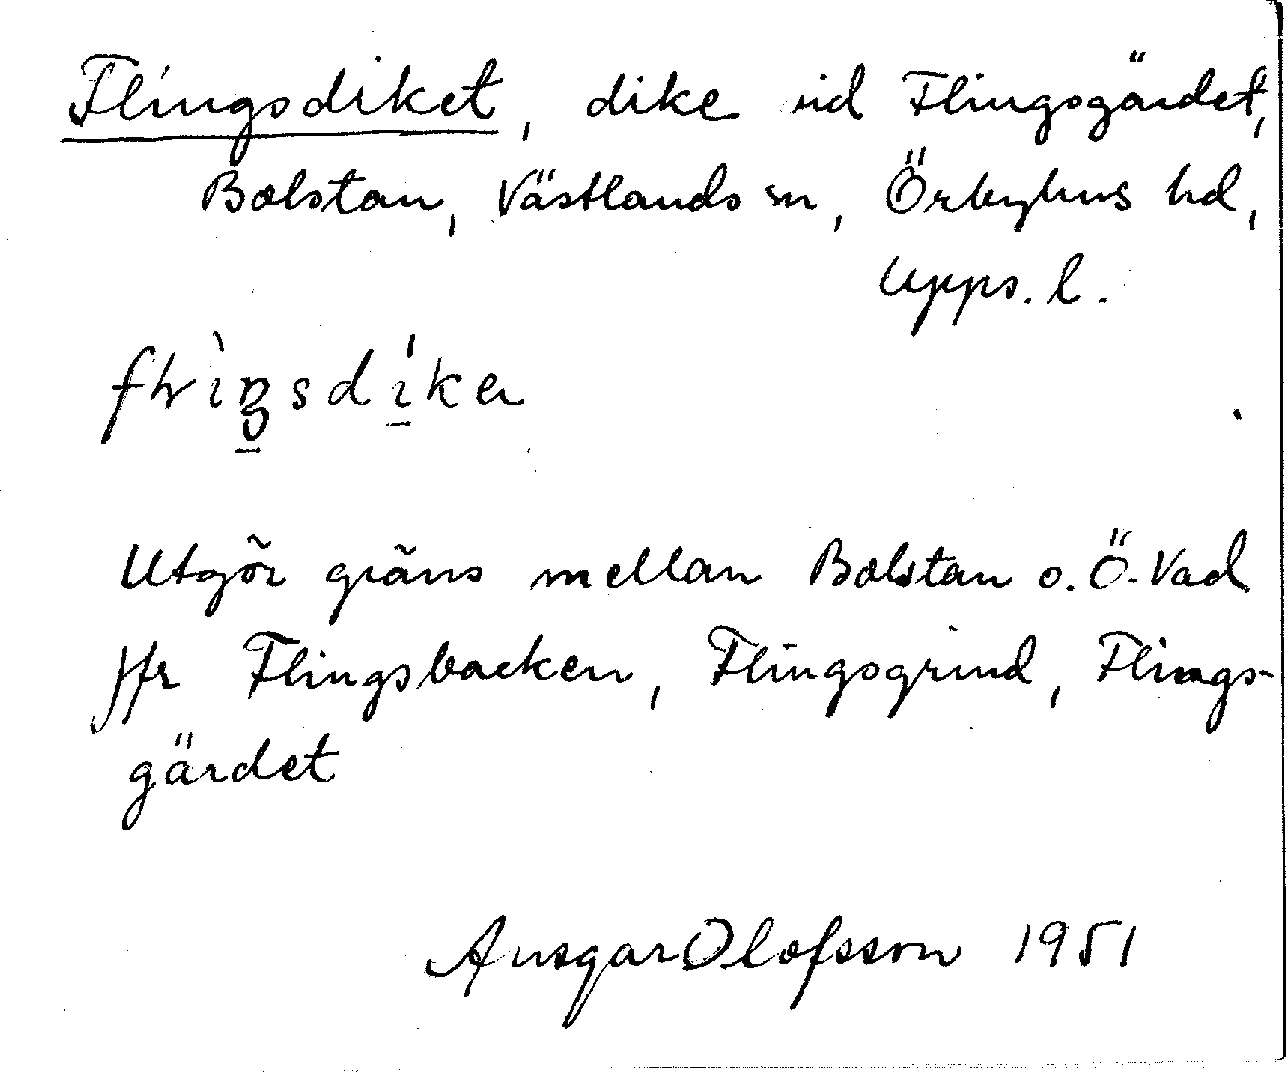 Flingsdiket, dike vid Flingsgärdet,
Bolstan, Västlands sn, Örbyhus hd,
Upps. l.
Utgör gräns mellan Bolstan o. Ö. Vad
Jfr Flingsbacken, Flingsgrind, Flings-
gärdet
Ansgar Olofsson 1951